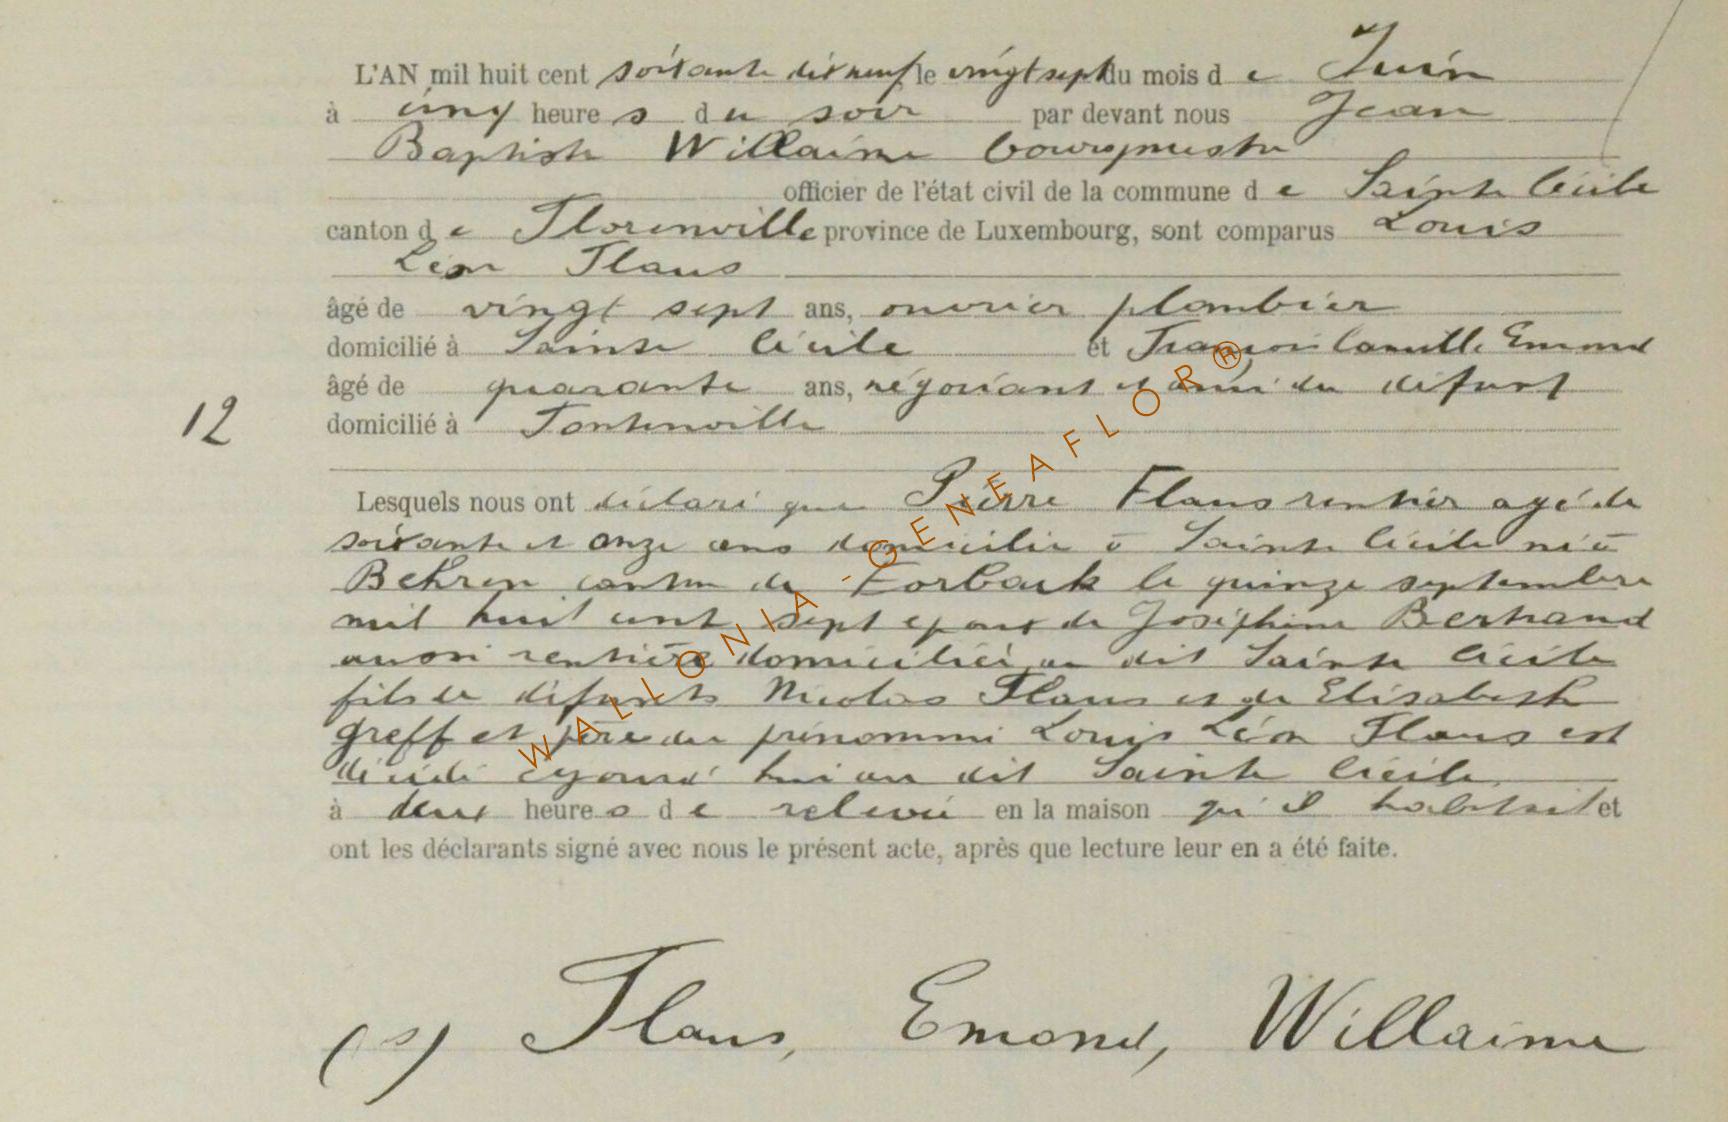 L'AN mil huit cent soixante dix neuf le vingt sept du mois de Juin
à cinq heures du soir par devant nous Jean
Baptiste Willaime bourgmestre
officier de l'état civil de la commune de Sainte Cécile
canton de Florenville province de Luxembourg, sont comparus Louis
Léon Flaus
âgé de vingt sept ans, ouvrier plombier
domicilié à Sainte Cécile et François Camille Emond
âgé de quarante ans, négociant et ami du défunt
12 domicilié à Fontenoille
Lesquels nous ont déclaré que Pierre Flaus rentier agé de
soixante et onze ans domicilié à Sainte Cécile né à
Behren canton de Forback le quinze septembre
mil huit cent sept epoux de Joséphine Bertrand
aussi rentière domiciliée au dit Sainte Cécile
fils de défunts Nicolas Flaus et de Elisabeth
Greff et père du prénommé Louis Léon Flaus est
décédé cejourd'hui au dit Sainte Cécile
à deux heures de relevée en la maison qu'il habitait et
ont les déclarants signé avec nous le présent acte, après que lecture leur en a été faite.
(s) Flaus, Emond, Willaime
WALLONIA - GENEAFLOR®